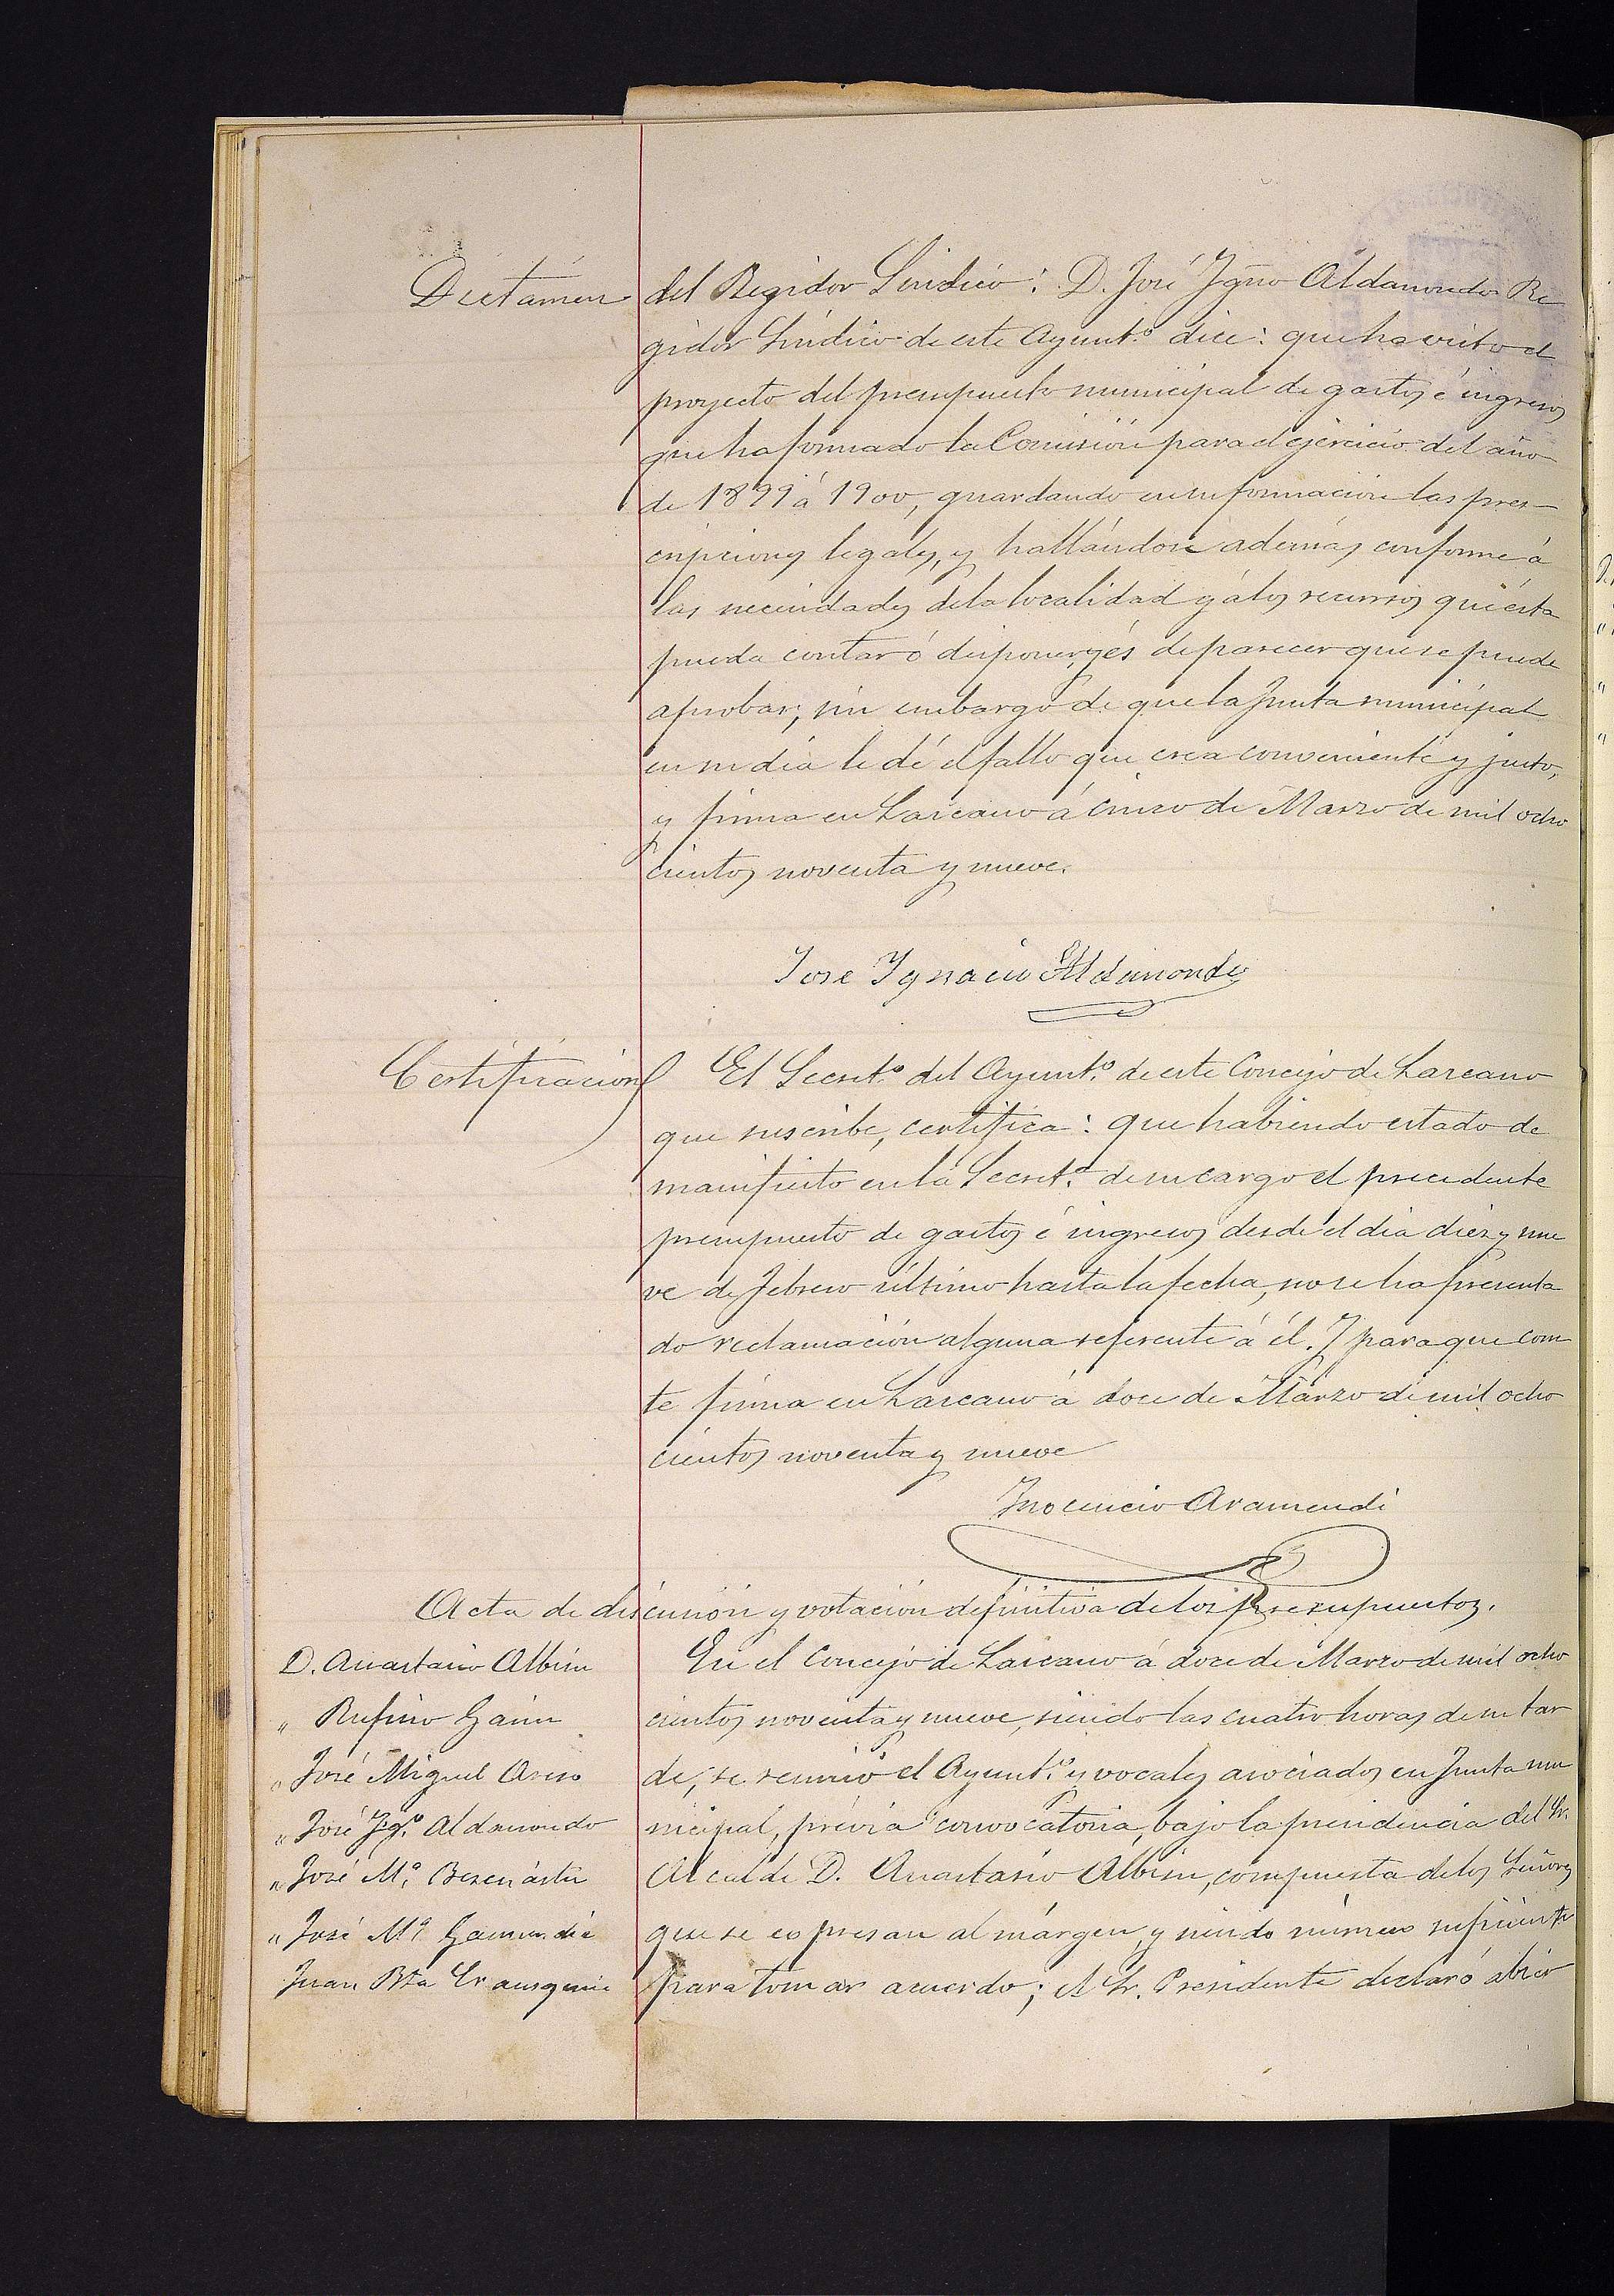 Dictámen del Regidor Síndico: D. José Ygno Aldamondo Re
gidor Síndico de este Ayuntº dice: que ha visto el
proyecto del presupuesto municipal de gastos é ingresos
que ha formado la Comisión para el ejercicio del año
de 1899 á 1900, guardando en su formación las pres-
cripciones legales, y hallándose además conforme á
las necesidades de la localidad y á los recursos que ésta
pueda contar ó disponer, y és de parecer que se puede
aprobar, sin embargo de que la Junta municipal
en su día le dé el fallo que crea conveniente y justo,
y firma en Lazcano á cinco de Marzo de mil ocho
cientos noventa y nueve.
Jose Ygnacio Aldamondo
Certificacion El Secretº del Ayuntº de este Concejo de Lazcano
que suscribe, certifica: que habiendo estado de
manifiesto en la Secretª de su cargo el precedente
presupuesto de gastos é ingresos desde el día diez y nue
ve de febrero último hasta la fecha, no se ha presenta
do reclamación alguna referente á él. Y para que cons
te firma en Lazcano á doce de Marzo de mil ocho
cientos noventa y nueve
Inocencio Aramendi
Acta de discusión y votación definitiva de los presupuestos.
D. Anastasio Albisu
" Rufino Gainz
" José Miguel Aseso
" José Ygº Aldamondo
" José Mª
" José Mª Gamindia
Juan Bta Erausquin
En el Concejo de Lazcano á doce de Marzo de mil ocho
cientos noventa y nueve, siendo las cuatro horas de su tar
de, se reunió el Ayuntº y vocales asociados en Junta mu
nicipal, prévia convocatoria, bajo la presidencia del Sr.
Alcalde D. Anastasio Albisu, compuesta de los Señores
que se expresan al márgen, y siendo número suficiente
para tomar acuerdo; el Sr. Presidente declaró abier